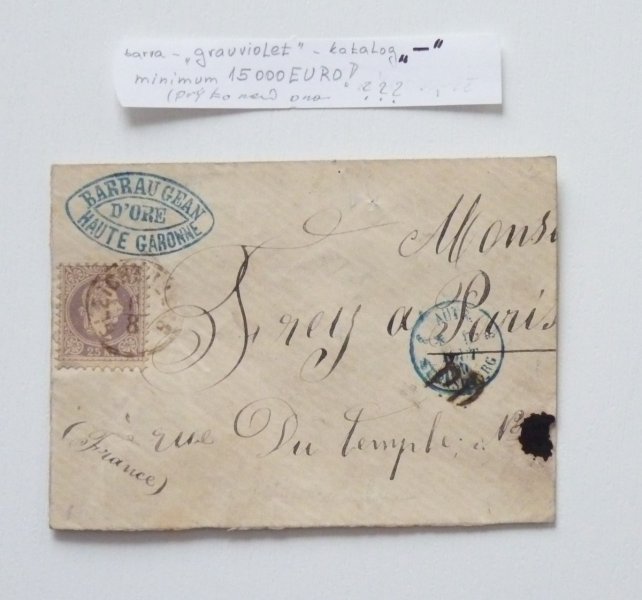 barva - "grauviolet" - katalog "—"
minimum 15000EURO!
(prý ko není ono ???
BARRAUGEAN
D'ORE
HAUTE GARONNE
Monsi
Frey a Paris
rue Du temple. N
(France)
25
8